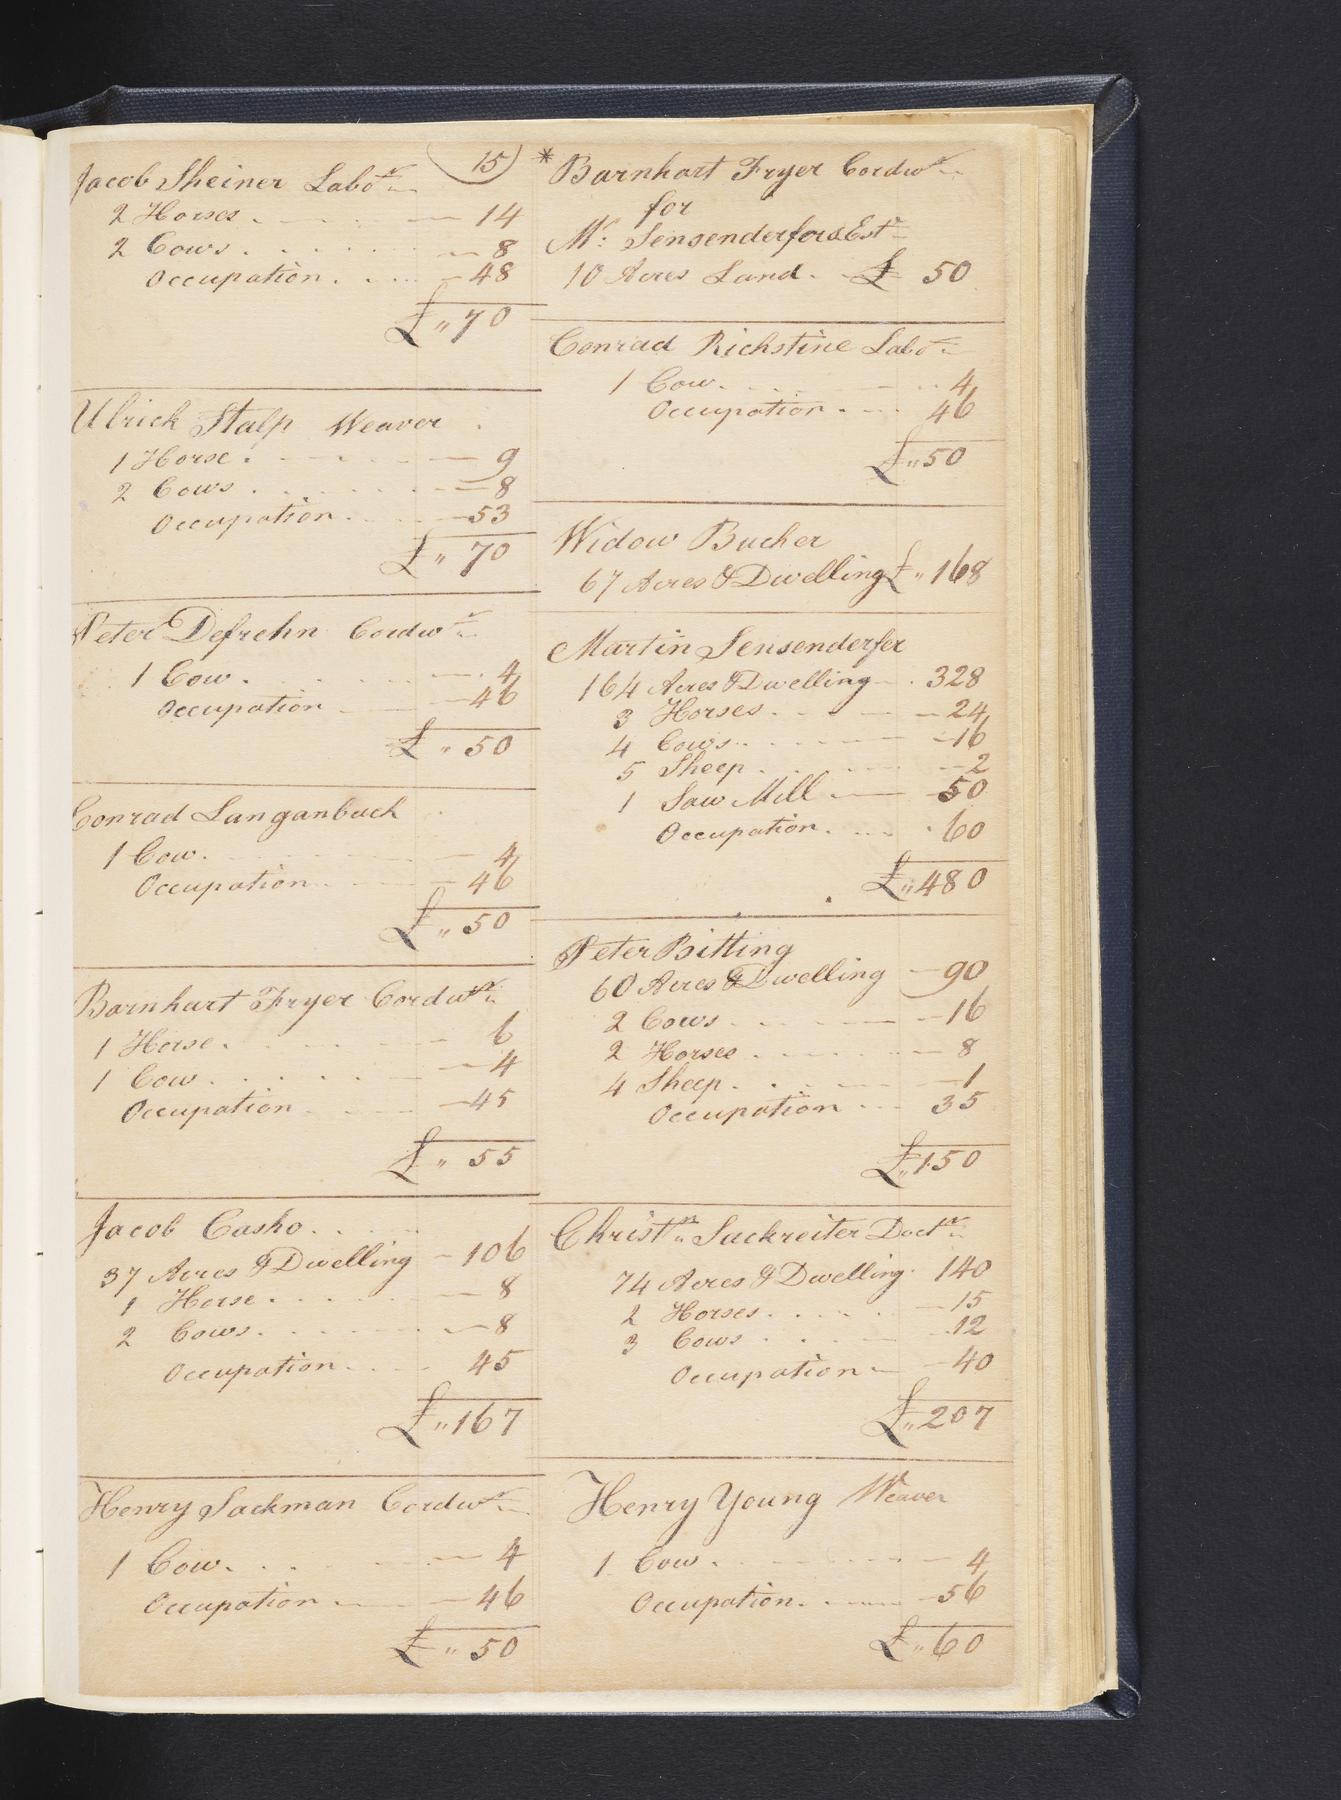 15
Jacob Sheiner Labor
2 Horses 14
2 Cows 8
Occupation 48
£ 〃 70
Ulrick Stalp Weaver
1 Horse 9
2 Cows 8
Occupation 53
£ 〃 70
Peter Defrehn Cordwr
1 Cow 4
Occupation 46
£ 〃 50
Conrad Langanbach
1 Cow 4
Occupation 46
£ 〃 50
Barnhart Fryer Cordwr
1 Horse 6
1 Cow 4
Occupation 45
£ 〃 55
Jacob Casho
37 Acres & Dwelling 106
1 Horse 8
2 Cows 8
Occupation 45
£ 〃 167
Henry Sackman Cordwr
1 Cow 4
Occupation 46
£ 〃 50
* Barnhart Fryer Cordwr
for
Mr: Sensenderfers Est
10 Acres Land £ 50
Conrad Richstine Labor
1 Cow 4
Occupation 46
£ 〃 50
Widow Bucher
67 Acres & Dwelling £ 〃 168
Martin Sensenderfer
164 Acres & Dwelling 328
3 Horses 24
4 Cows 16
5 Sheep 2
1 Saw Mill 50
Occupation 60
£ 〃 480
Peter Bitting
60 Acres & Dwelling 90
2 Cows 16
2 Horses 8
4 Sheep 1
Occupation 35
£ 〃 150
Christn Sackreiter Doctr
74 Acres & Dwelling 140
2 Horses 15
3 Cows 12
Occupation 40
£ 〃 207
Henry Young Weaver
1 Cow 4
Occupation 56
£ 〃 60